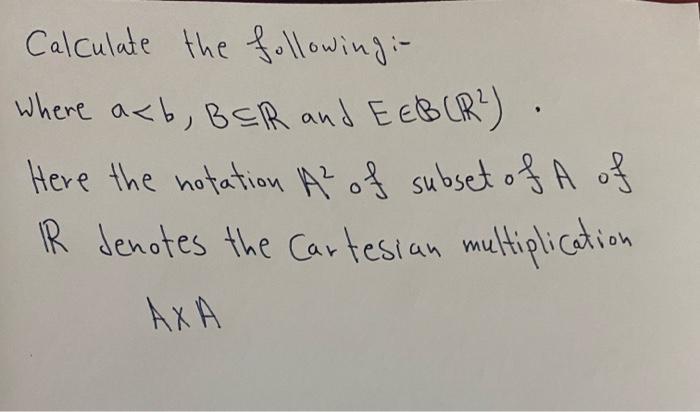 Calculate the following:-
where a<b, B⊆ℝ and E∈𝔅(ℝ²) .
Here the notation A² of subset of A of
ℝ denotes the Cartesian multiplication
A×A